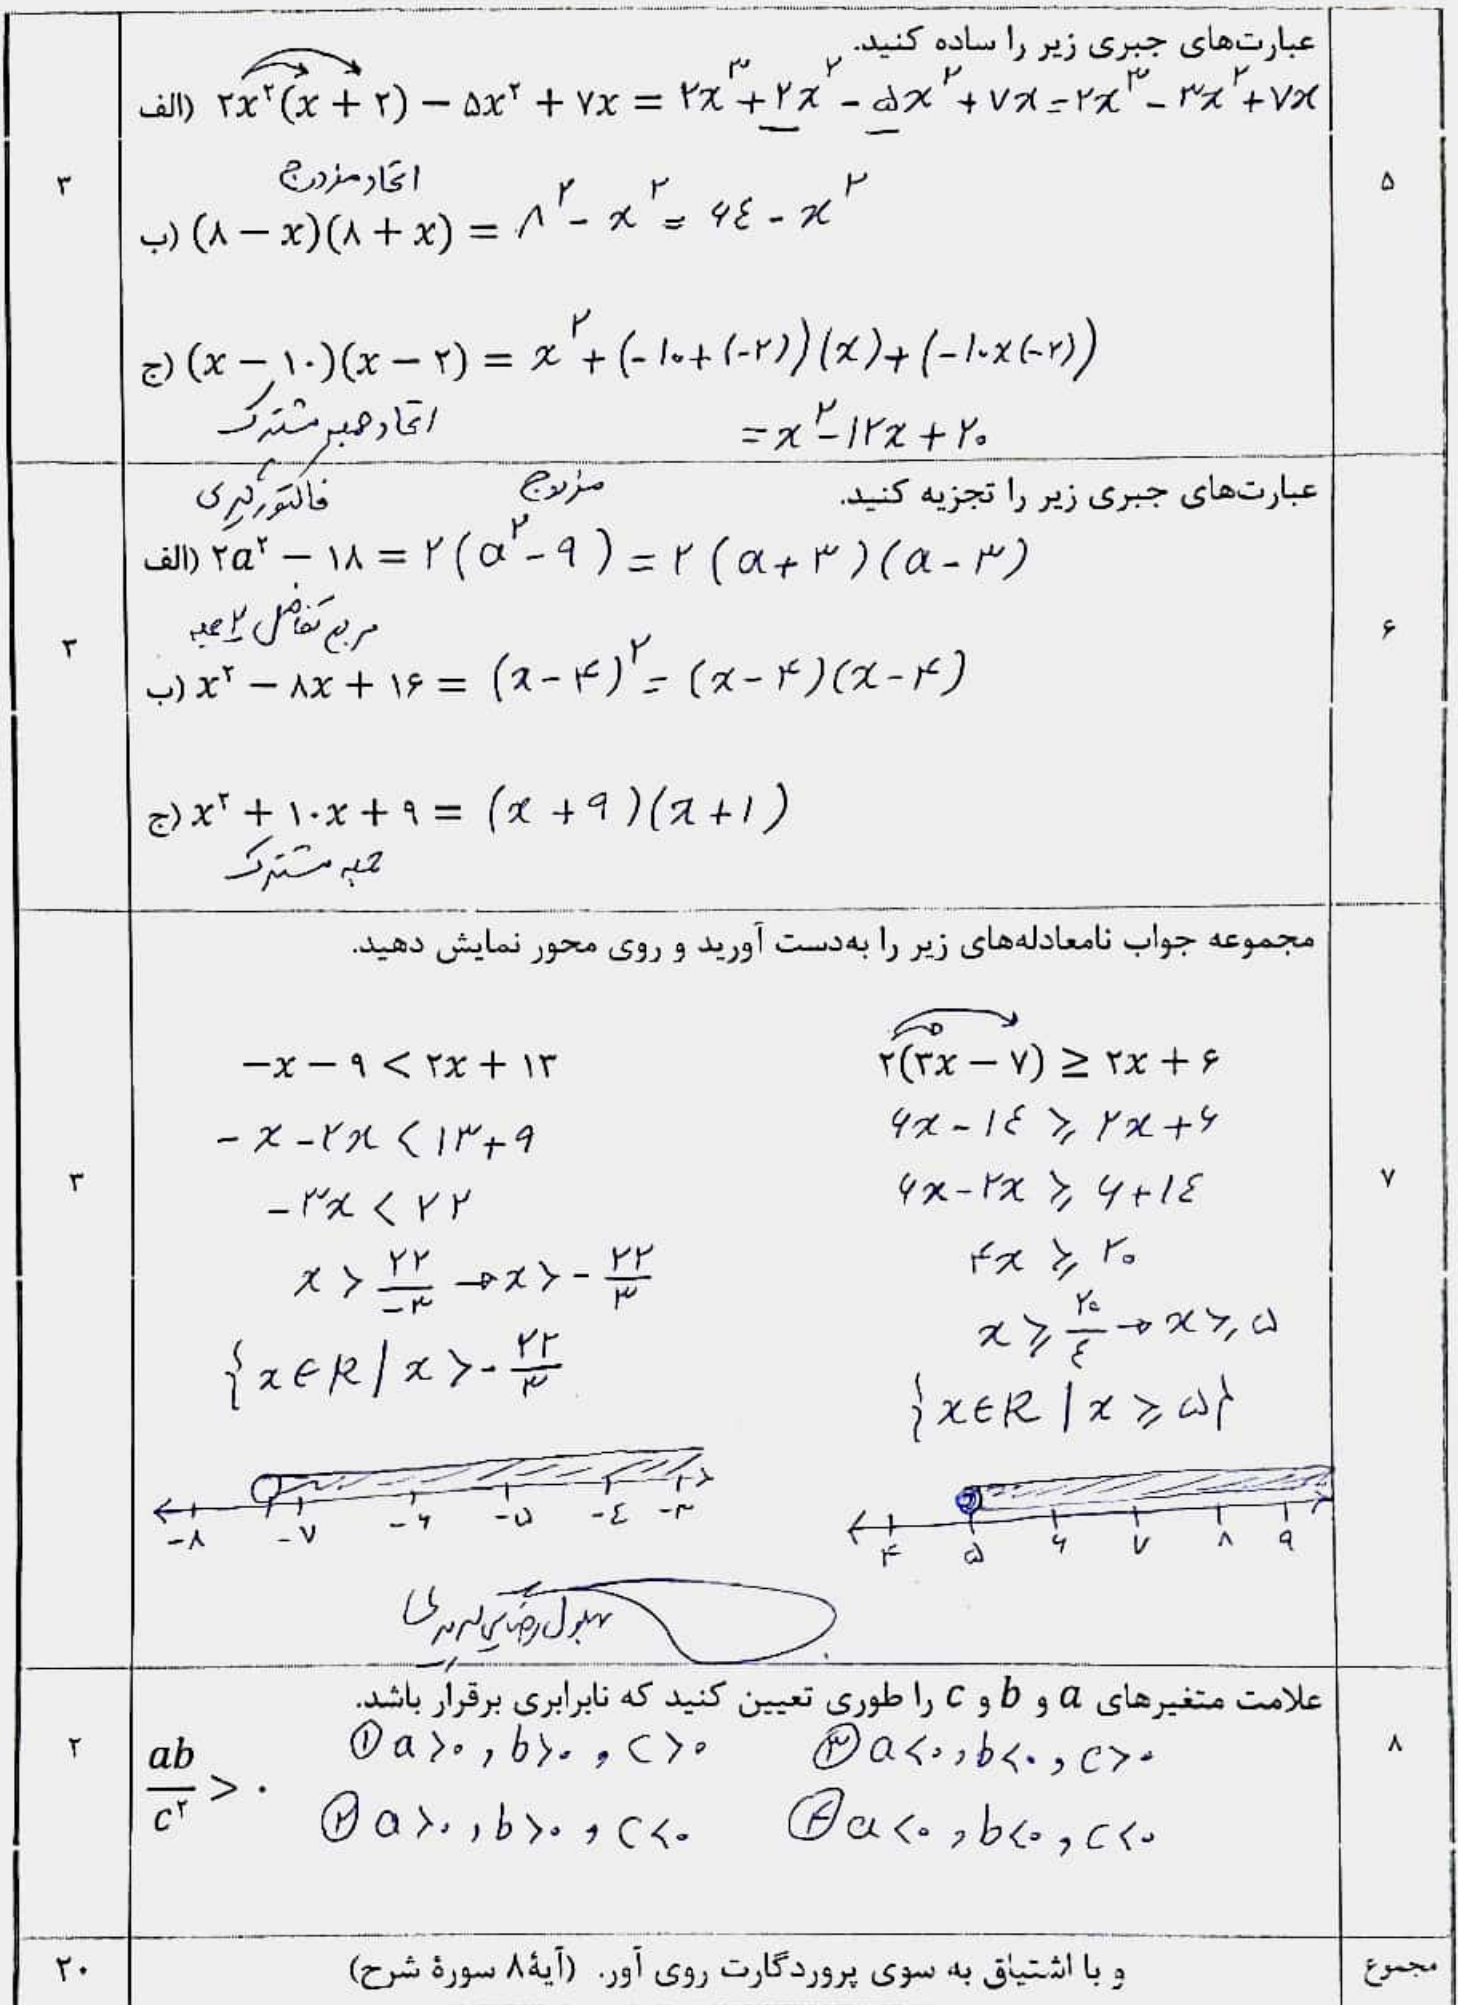 عبارت‌های جبری زیر را ساده کنید.
الف) ۲x^۲(x + ۲) − ۵x^۲ + ۷x = ۲x^۳ + ۲x^۲ - ۵x^۲ + ۷x = ۲x^۳ - ۳x^۲ + ۷x
۳
۵
اتحاد مزدوج
ب) (۸ − x)(۸ + x) = ۸^۲ - x^۲ = ۶٤ - x^۲
ج) (x − ۱۰)(x − ۲) = x^۲ + (-۱۰+(-۲))(x) + (-۱۰×(-۲))
اتحاد جمله مشترک
= x^۲ - ۱۲x + ۲۰
عبارت‌های جبری زیر را تجزیه کنید.
فاکتورگیری
مزدوج
الف) ۲a^۲ − ۱۸ = ۲(a^۲ - ۹) = ۲(a+۳)(a-۳)
مربع تفاضل ۲ جمله
۳
۶
ب) x^۲ − ۸x + ۱۶ = (x-۴)^۲ = (x-۴)(x-۴)
ج) x^۲ + ۱۰x + ۹ = (x+۹)(x+۱)
جمله مشترک
مجموعه جواب نامعادله‌های زیر را به‌دست آورید و روی محور نمایش دهید.
۳
۷
۲(۳x − ۷) ≥ ۲x + ۶
۶x - ۱٤ ≥ ۲x + ۶
۶x - ۲x ≥ ۶ + ۱٤
۴x ≥ ۲۰
x ≥ ۲۰/٤ → x ≥ ۵
{x∈R | x ≥ ۵}
۴ ۵ ۶ ۷ ۸ ۹
−x − ۹ < ۲x + ۱۳
-x - ۲x < ۱۳ + ۹
-۳x < ۲۲
x > ۲۲/-۳ → x > -۲۲/۳
{x∈R | x > -۲۲/۳
-۸ -۷ -۶ -۵ -٤ -۳
علامت متغیرهای a و b و c را طوری تعیین کنید که نابرابری برقرار باشد.
۲
۸
ab/c^۲ > ۰
① a>۰ , b>۰ , c>۰
③ a<۰ , b<۰ , c>۰
② a>۰ , b>۰ , c<۰
④ a<۰ , b<۰ , c<۰
۲۰
و با اشتیاق به سوی پروردگارت روی آور. (آیهٔ ۸ سورهٔ شرح)
مجموع